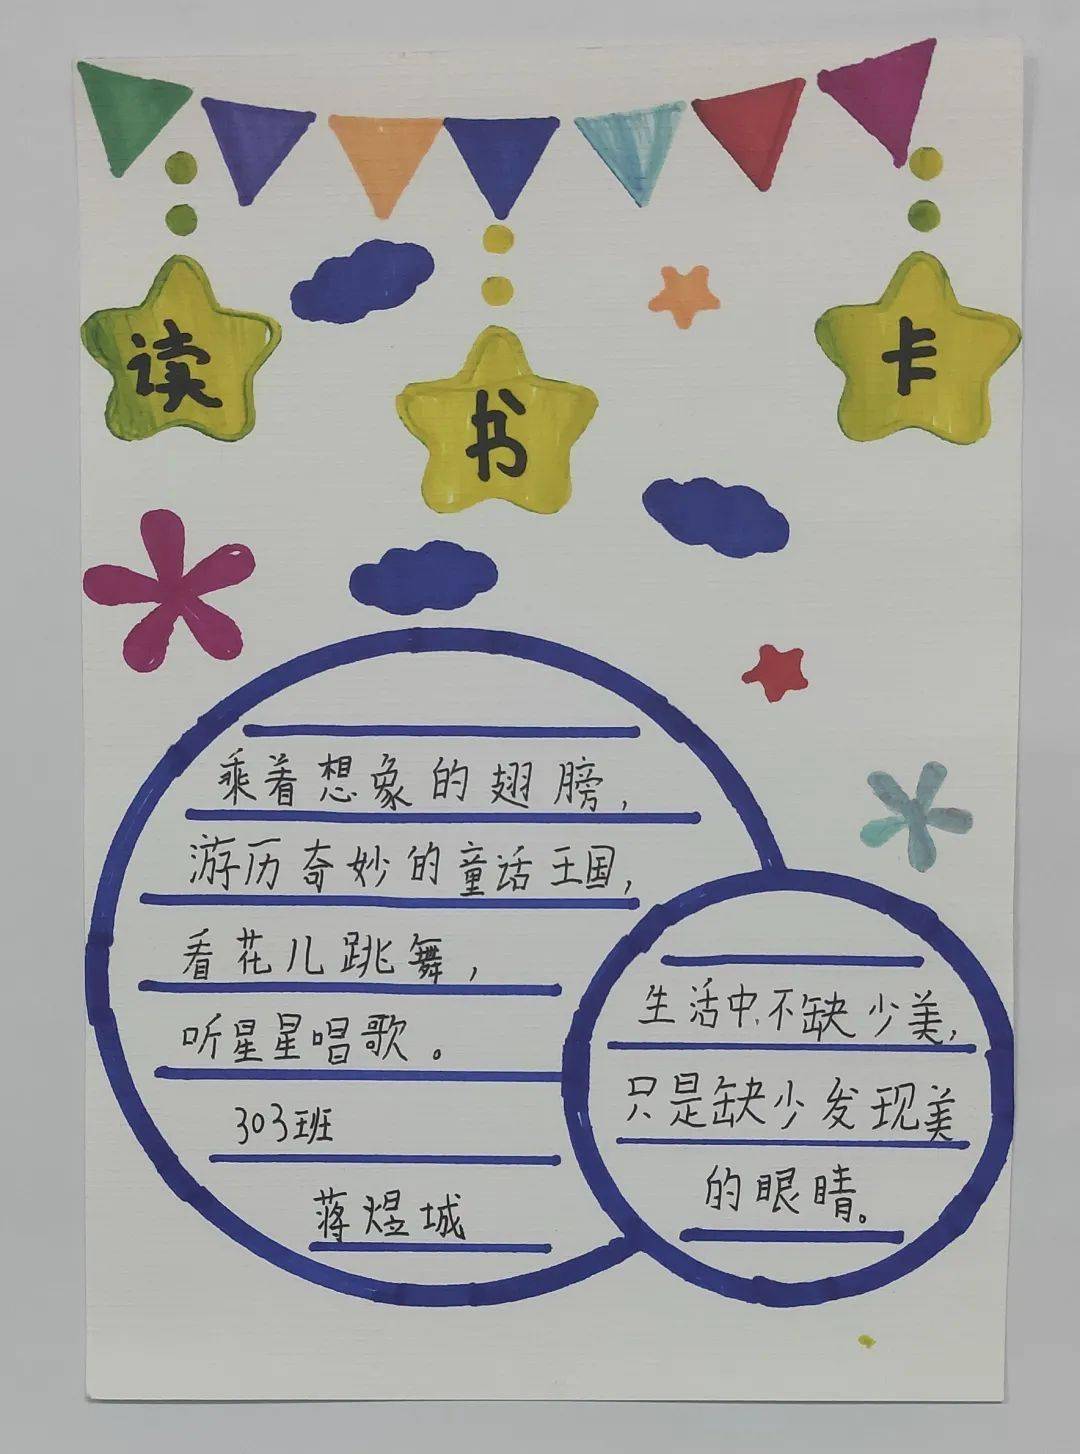 读书卡
乘着想象的翅膀，
游历奇妙的童话王国，
看花儿跳舞，
听星星唱歌。
303班
蒋煜城
生活中不缺少美，
只是缺少发现美
的眼睛。